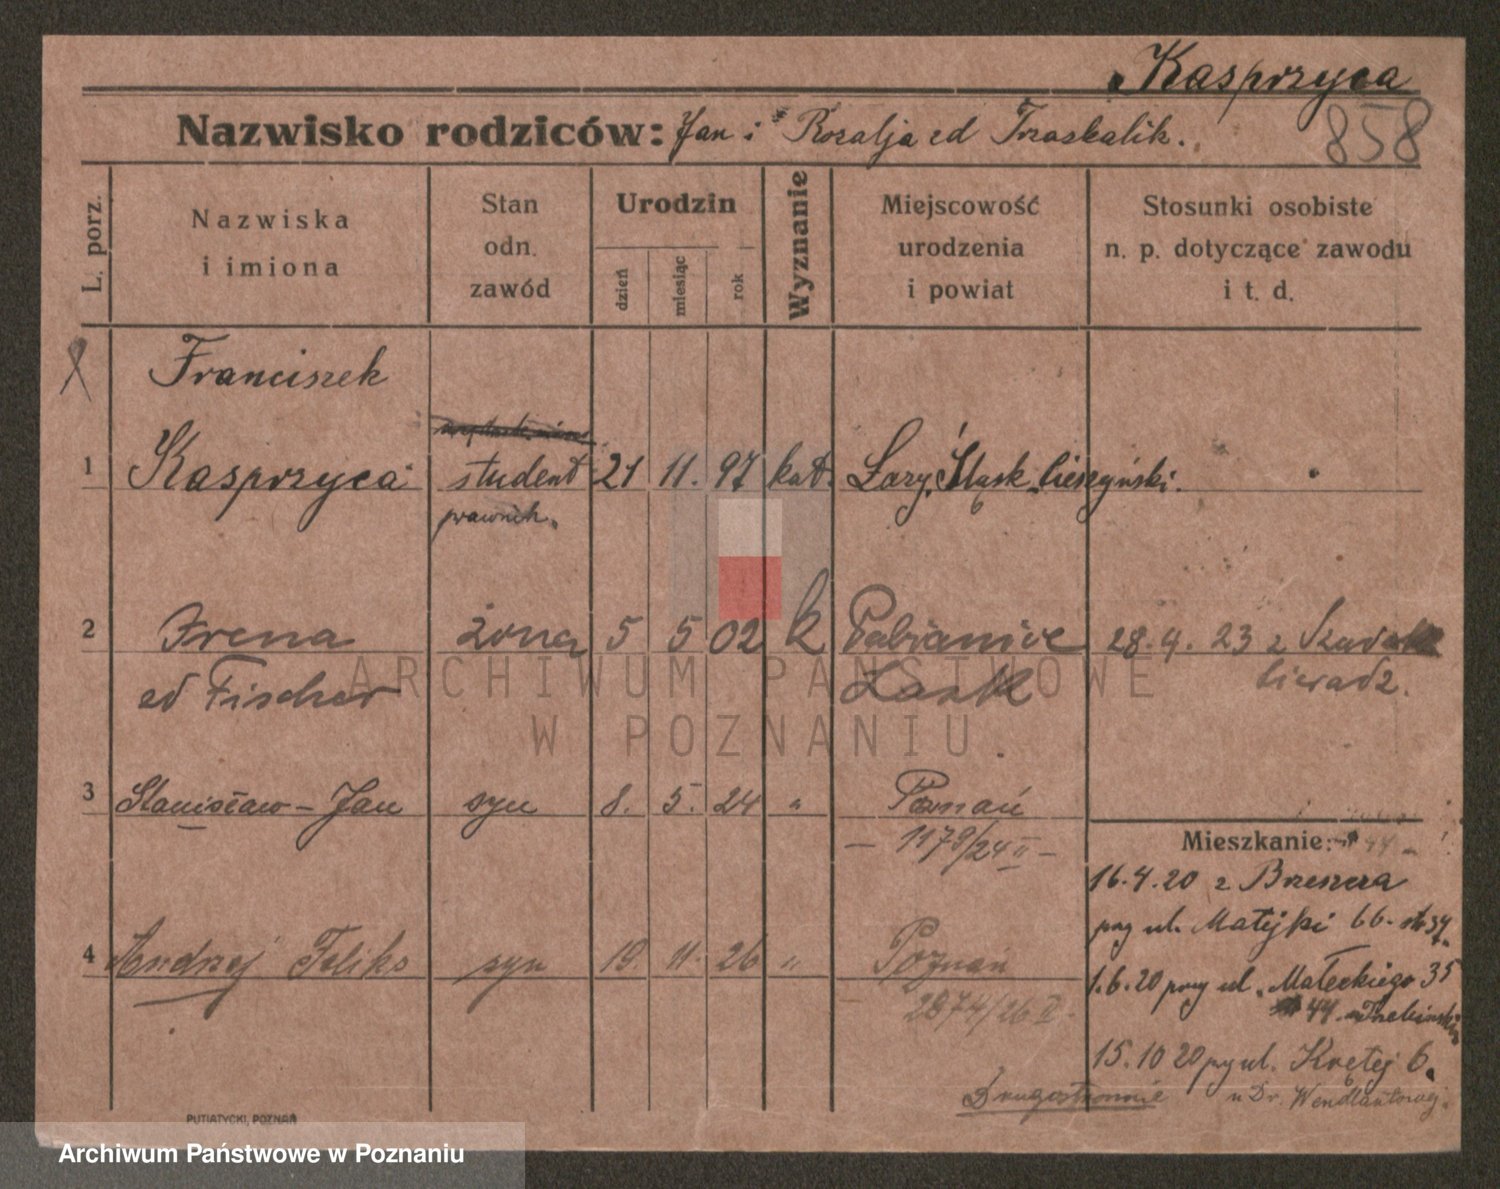 Kasprzyca
858
Nazwisko rodziców: Jan i Rozalja zd Trzaskalik.
L. porz.
Nazwiska i imiona
Stan odn. zawód
Urodzin
dzień
miesiąc
rok
Wyznanie
Miejscowość urodzenia i powiat
Stosunki osobiste n. p. dotyczące zawodu i t. d.
Franciszek
1 Kasprzyca student 21 11. 97 kat. Łazy, Śląsk Cieszyński.
prawnik.
2 Irena żona 5 5 02 k Pabianice 28.4. 23 z
zd Fischer Łask Sieradz.
3 Stanisław – Jan syn 8. 5. 24 " Poznań
– 1179/24 II –
Mieszkanie:
16.4.20 z
przy ul. Matejki 66.
4 Andrzej Feliks syn 19. 11. 26 " Poznań
2874/26 II.
1.6.20 przy ul. Małeckiego 35
44.
15.10 20 przy ul. Krętej 6.
Drugostronnie
u Dr.
PUTIATYCKI, POZNAŃ
ARCHIWUM PAŃSTWOWE
W POZNANIU
Archiwum Państwowe w Poznaniu